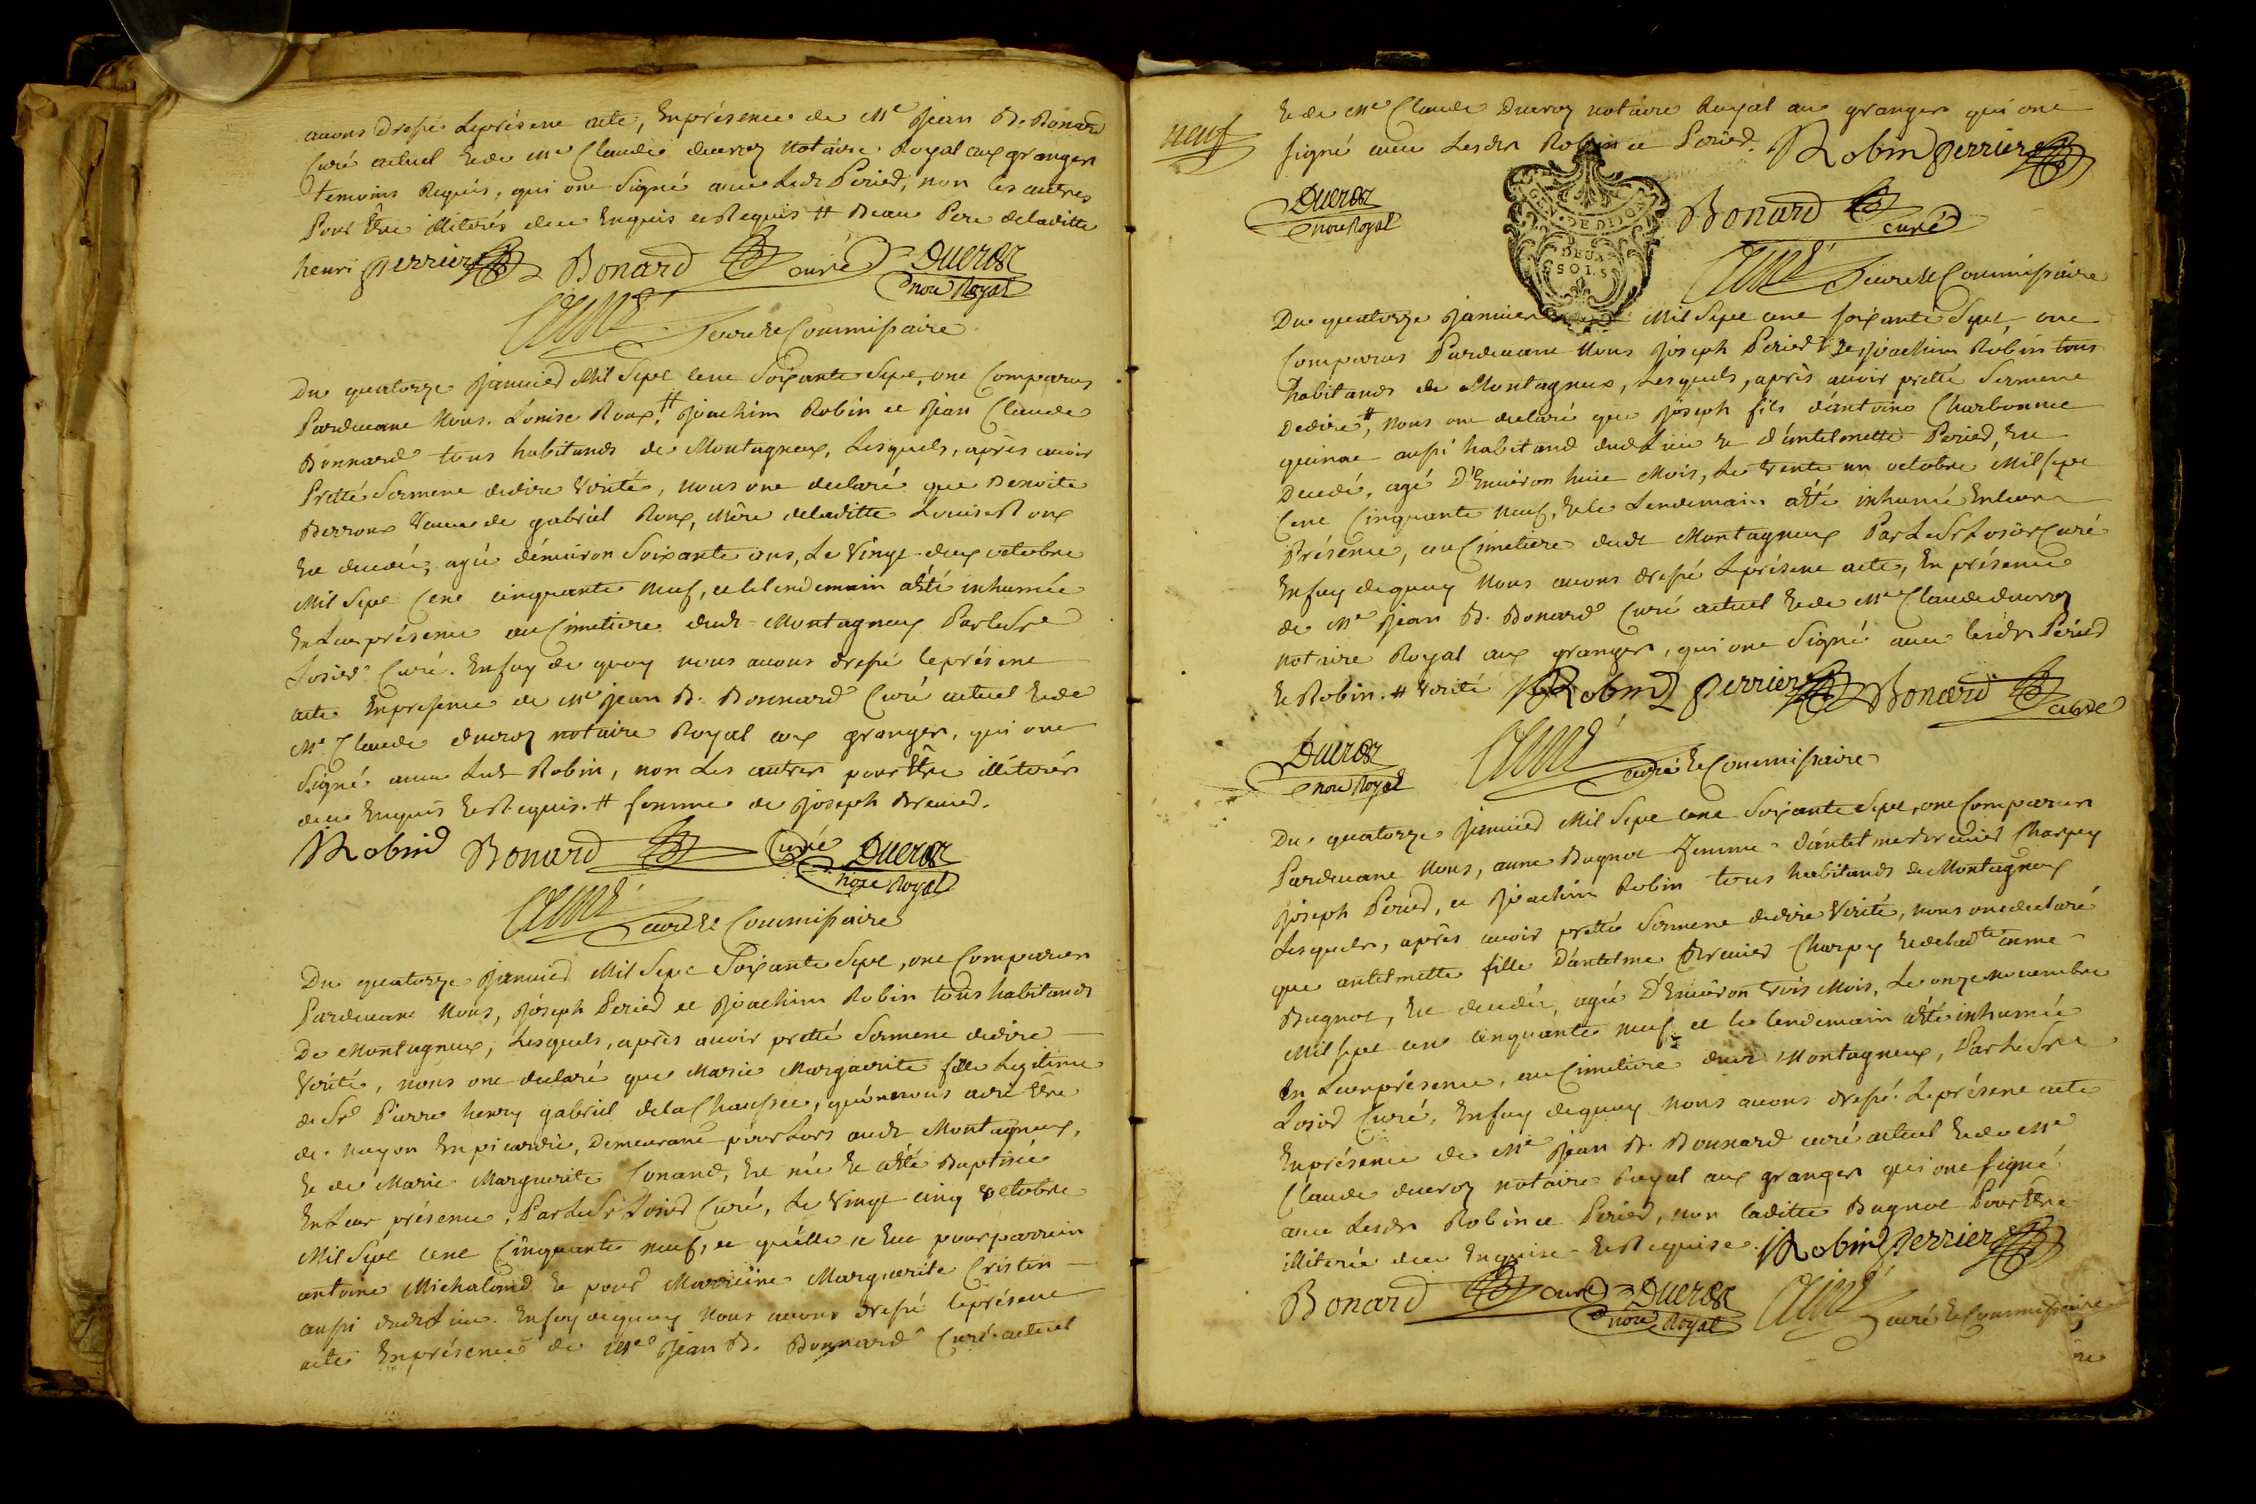 avons dressé le présent acte, En présence de Me Jean B. Bonard
Curé actuel et de Me Claude ducroz Notaire Royal aux granges
temoins Requis, qui ont Signé avec Ledt Périer, non les autres
Pour être illiterés de ce Enquis et Requis # Beau Pere de laditte
henri perrier Bonard curé Ducroz
nore Royal
Curé et Commissaire
Du quatorze Janvier Mil Sept Cent Soixante Sept, ont Comparus
Pardevant Nous Louise Roux,# Joachim Robin et Jean Claude
Bonnard tous habitands de Montagneux, Lesquels, après avoir
Pretté Serment de dire Verité, nous ont declaré que Benoite
Perroux Veuve de gabriel Roux, Mère de laditte Louise Roux
Est decedée, agée d'environ Soixante ans, Le Vingt-deux octobre
Mil Sept Cent cinquante Neuf, et le lendemain a été inhumée
En Leur présence au Cimetiere dudt Montagneux Par le Sr
Losier Curé. En foy de quoy nous avons dressé le présent
acte En presence de Me Jean B. Bonnard Curé actuel et de
Me Claude ducroz notaire Royal aux granges, qui ont
Signé avec Ledt Robin, non Les autres pour être illiterés
de ce Enquis et Requis. # femme de Joseph Brevier.
Robin Bonard Curé Ducroz
nore Royal
curé et Commissaire
Du quatorze Janvier Mil Sept Soixante Sept, ont Comparu
Pardevant Nous, Joseph Perier et Joachim Robin tous habitands
De Montagneux, Lesquels, après avoir pretté Serment de dire
Verité, nous ont declaré que Marie Marguerite fille Legitime
de Sr Pierre henry gabriel de la Chaussée, qu'on nous a dit être
de noyon En picardie, Demeurant pour Lors audt Montagneux,
Et de Marie Marguerite Conand, Est née Et a été Baptisée
En Leur présence, Par Le Sr Losier Curé, Le Vingt cinq octobre
Mil Sept Cent Cinquante neuf, et qu'elle a Eut pour parrain
antoine Michaland Et pour Marreine Marguerite Cristin
aussi dudt Lieu. En foy de quoy Nous avons dressé le présent
acte En présence de Me Jean B. Bonnard Curé actuel
neuf
Et de Me Claude Ducroz notaire Royal aux granges qui ont
signé avec Lesdts Robin et Périer. Robin perrier
GEN. DE DIJON
DEUX
SOLS
Ducroz
nore Royal
Bonard curé
Curé et Commissaire
Du quatorze Janvier Mil Sept cent soixante Sept, ont
Comparus Pardevant Nous Joseph Perier et Joachim Robin tous
habitands de Montagneux, Lesquels, après avoir pretté Serment
De dire#, nous ont declaré que Joseph fils d'antoine Charbonnet
aussi habitand dudt Lieu Et d'antelmette Perier, Est
Decedé, agé D'Environ huit Mois, Le trente un octobre Mil sept
Cent Cinquante Neuf, Et le Lendemain a été inhumé En Leur
Présence, au Cimetiere dudt Montagneux Par Le Sr Losier Curé
En foy de quoy Nous avons dressé Le présent acte, En présence
de Me Jean B. Bonard Curé actuel Et de Me Claude ducroz
notaire Royal aux granges, qui ont Signé avec lesdts Périer
Et Robin. # Verité Robin perrier Bonard curé
Ducroz
nore Royal
curé Et Commissaire
Du quatorze Janvier Mil Sept cent Soixante Sept, ont Comparus
Pardevant Nous, anne Bugnot femme d'antelme Brevier Charpy
Joseph Perier, et Joachim Robin tous habitands de Montagneux
Lesquels, après avoir pretté Serment de dire Verité, nous ont declaré
que antelmette fille D'antelme Brevier Charpy Et de ladte anne
Bugnot, Est decedée, agée D'Environ trois Mois, Le onze novembre
Mil sept cent cinquante neuf et le lendemain a été inhumée
En Leur présence, au Cimetiere dudt Montagneux, Par Le Sr
Losier Curé, En foy de quoy Nous avons dressé Le présent acte
En présence de Me Jean B. Bonnard curé actuel Et de Me
Claude ducroz notaire Royal aux granges qui ont signé
avec Lesdts Robin et Perier, non laditte Bugnot Pour être
illiterée de ce Enquise Et Requise. Robin perrier
Bonard curé Ducroz
nore Royal
curé et Commissaire